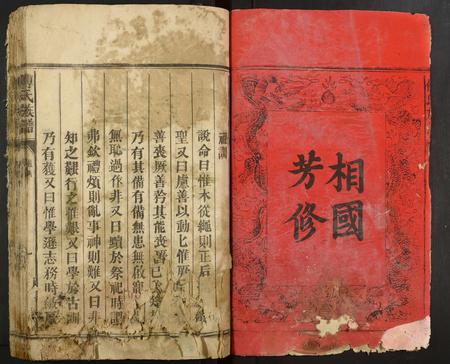 相國
芳修
說命曰惟木從繩則正后
聖又曰慮善以動
善喪厥善矜其能喪
乃有其備有備無患無啟寵
無恥過作非又曰黷於祭祀時謂
弗欽禮煩則亂事神則難又曰非
知之艱行之惟艱又曰學於古訓
乃有獲又曰惟學遜志務時敏厥
氏族譜